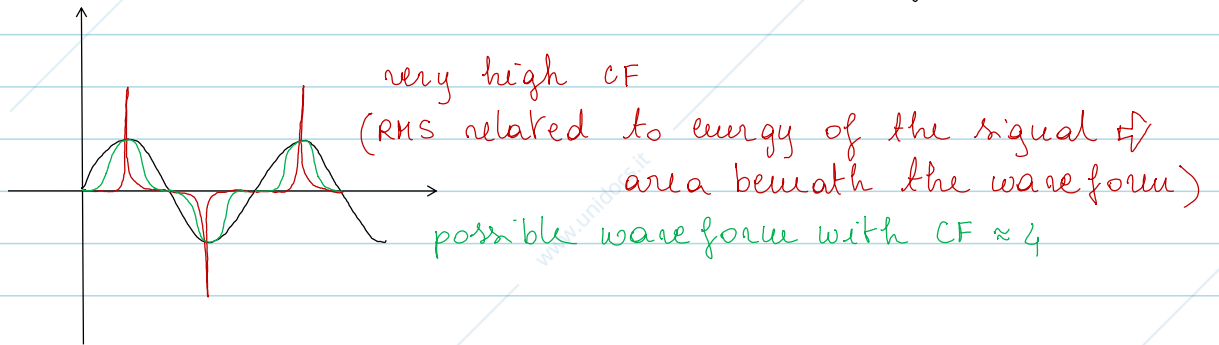 very high CF
(RMS related to energy of the signal ⇨
area beneath the waveform)
possible waveform with CF ≈ 4
www.unidocs.it